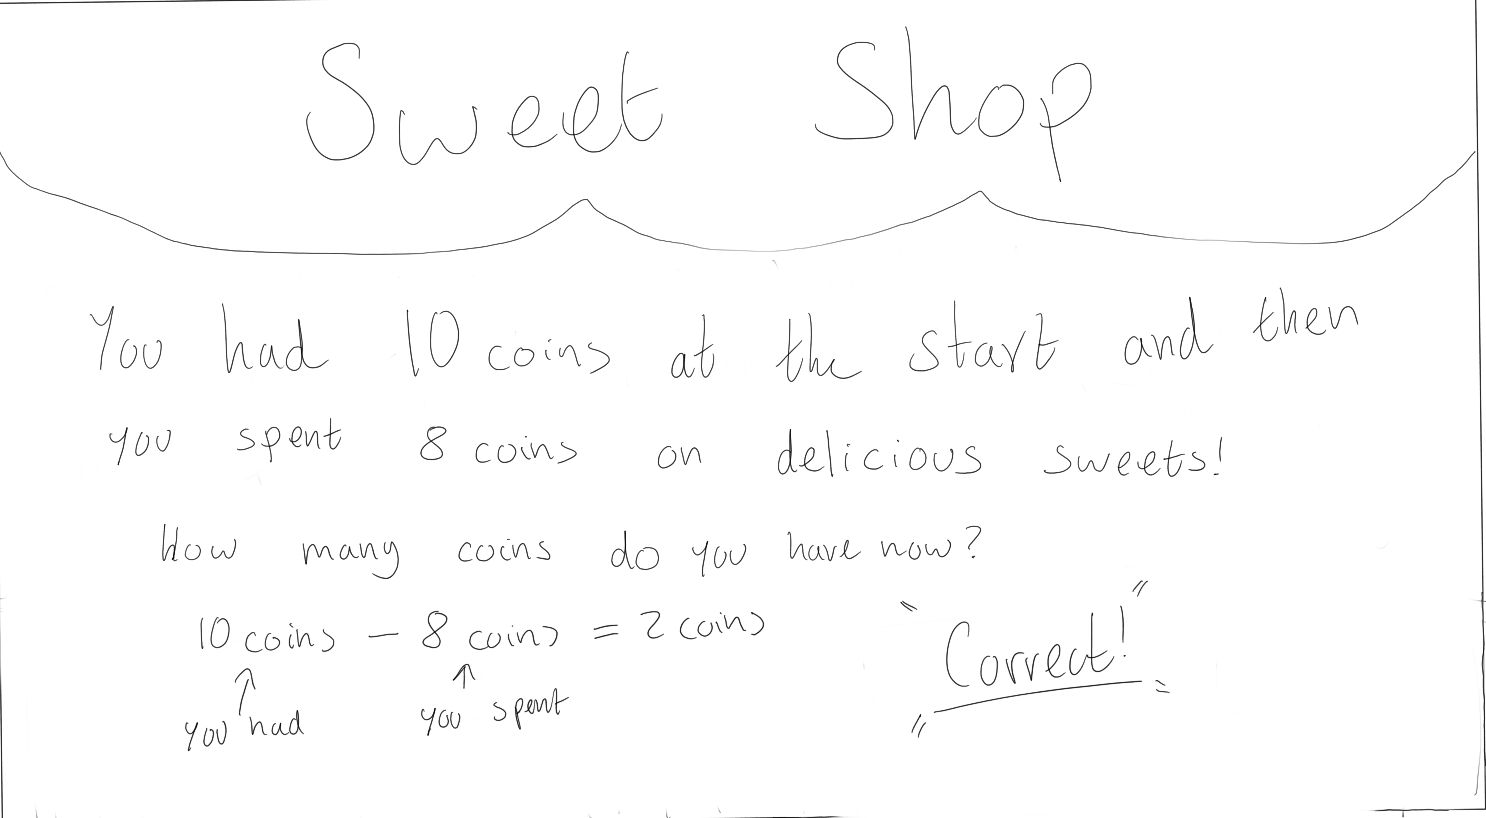 Sweet Shop
You had 10 coins at the start and then
you spent 8 coins on delicious sweets!
How many coins do you have now?
10 coins - 8 coins = 2 coins
you had
you spent
Correct!